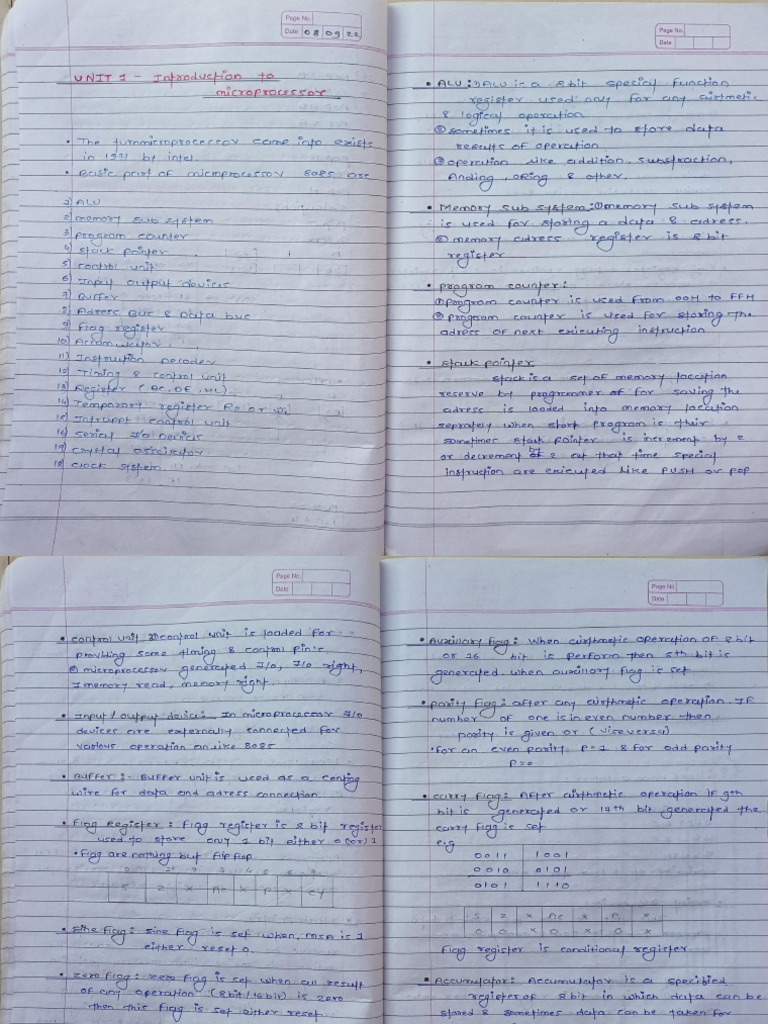 Page No.
Date 08 09 22
UNIT 1 - Introduction to
microprocessor
• The turnmicroprocessor come into exists
in 1971 by intel.
• Basic part of microprocessor 8085 are
1) ALU
2) memory sub system
3) program counter
4) stack pointer
5) control unit
6) Input output devices
7) Buffer
8) Adress Bus & Data bus
9) Flag register
10) Accumulator
11) Instruction Decoder
12) Timing & control unit
13) Register (BC, DE, HL)
14) Temporary register
15) Intruppt control unit
16) serial I/O Devices
17) crystal oscillator
18) clock system
Page No.
Date
• ALU : ① ALU is a 8 bit special function
register used any for any airtmetic
& logical operation
② sometimes it is used to store data
results of operation.
③ operation like addition, substraction,
Anding, ORing & other.
• Memory sub system : ① memory sub system
is used for storing a data & adress.
② memory adress register is 8 bit
register
• program counter :
① program counter is used from 00H to FFH
② program counter is used for storing the
adress of next executing instruction
• stack pointer
stack is a set of memory laccation
reserve by programmer of for saving the
adress is loaded into memory laccation
seprately when start program is their
sometimes stack pointer is increment by 2
or decrement by 2 at that time special
instruction are executed like PUSH or POP
Page No.
Date
• control unit control unit is loaded for
providing some timing & control pin's.
② microprocessor generated I/O, I/O right,
I memory read, memory right.
• Input / output device :. In microprocessor I/O
devices are externally connected for
various operation like 8085
• Buffer : - Buffer unit is used as a
wire for data and adress connection.
• Flag Register : Flag register is 8 bit register
used to store any 1 bit either 0 (or) 1
• Flag are nothing but flip flop
S Z X AC X P X CY
• sine flag : sine flag is set when MSB is 1
either reset 0.
• zero flag : zero flag is set when an result
of any operation (8 bit / 16 bit) is zero
then this flag is set either reset.
Page No.
Date
• Auxillary flag : When airthmetic operation of 8 bit
or 16 bit is perform then 5th bit is
generated when auxillary flag is set
• parity flag : after any airthmetic operation. If
number of one is in even number then
parity is given or (viseversa)
• for an even parity P=1 & for odd parity
P=0
• carry flag : After airthmetic operation if 9th
bit is generated or 17th bit generated the
carry flag is set
e.g
0011 1001
0010 0101
0101 1110
S Z X AC X P X
0 0 X 0 X 0 X
Flag register is conditional register
• Accumulator : Accumulator is a specified
register of 8 bit in which data can be
stored & sometimes data can be taken for